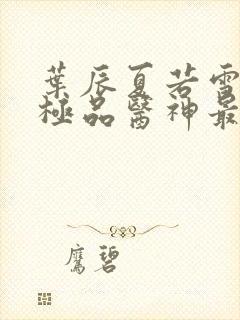 葉辰夏若雪
極品醫神最
鷹碧